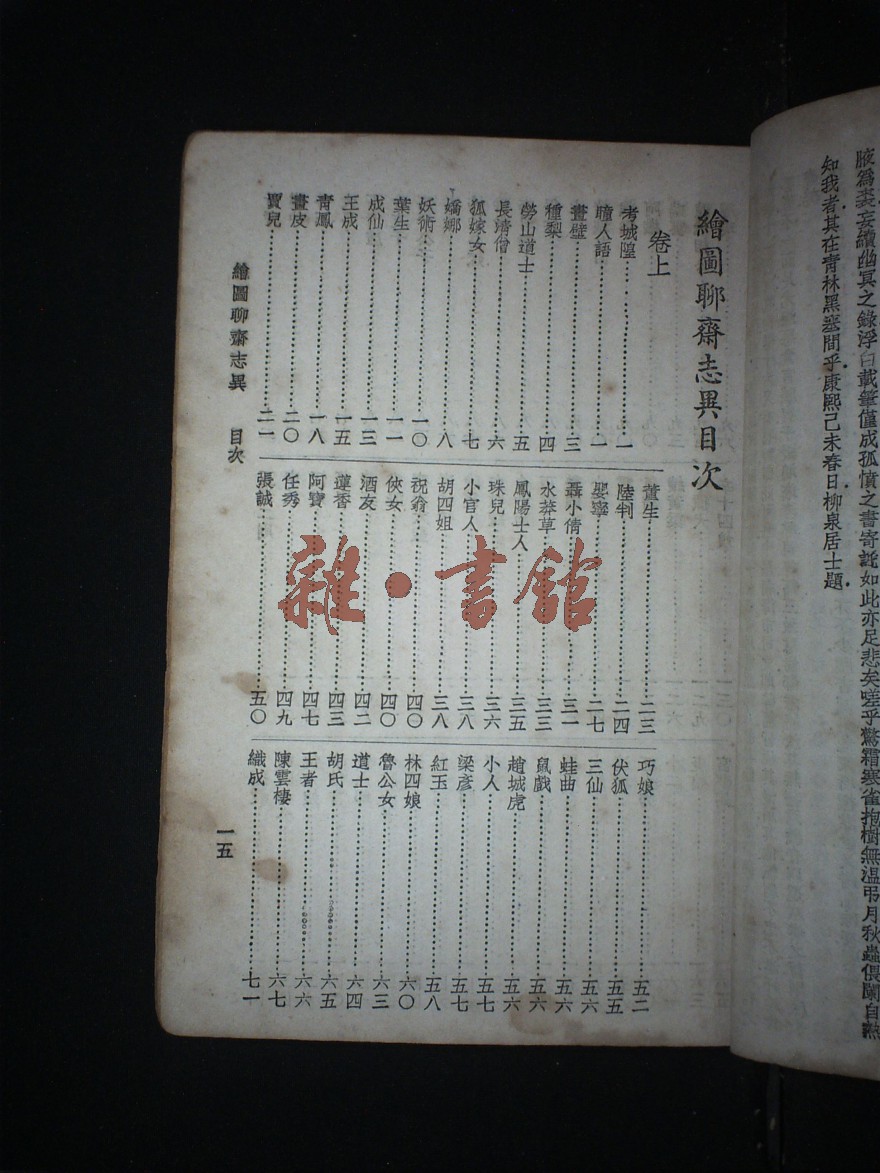 腋爲裘妄續幽冥之錄浮白載筆僅成孤憤之書寄託如此亦足悲矣嗟乎驚霜寒雀抱樹無溫弔月秋蟲偎闌自熱
知我者其在青林黑塞間乎康熙己未春日柳泉居士題
繪圖聊齋志異目次
卷上
考城隍一
瞳人語一
畫壁三
種梨四
勞山道士五
長淸僧六
狐嫁女七
嬌娜八
妖術一〇
葉生一一
成仙一三
王成一五
靑鳳一八
畫皮二〇
賈兒二一
董生二三
陸判二四
嬰寧二七
聶小倩三一
水莽草三三
鳳陽士人三五
珠兒三六
小官人三八
胡四姐三八
祝翁四〇
俠女四〇
酒友四二
蓮香四三
阿寶四七
任秀四九
張誠五〇
巧娘五二
伏狐五五
三仙五六
蛙曲五六
鼠戲五六
趙城虎五六
小人五七
梁彥五七
紅玉五八
林四娘六〇
魯公女六三
道士六四
胡氏六五
王者六六
陳雲棲六七
織成七一
繪圖聊齋志異 目次
一五
雜·書館